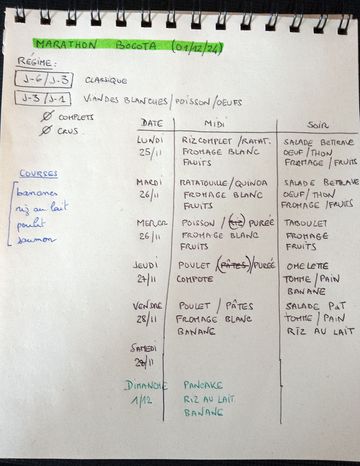 MARATHON BOGOTA (01/12/24)
RÉGIME :
J-6 / J-3 CLASSIQUE
J-3 / J-1 VIANDES BLANCHES / POISSON / OEUFS
Ø COMPLETS
Ø CRUS
COURSES
bananes
riz au lait
poulet
saumon
DATE MIDI SOIR
LUNDI RIZ COMPLET / RATAT. SALADE BETRAVE
25/11 FROMAGE BLANC OEUF / THON
FRUITS FROMAGE / FRUITS
MARDI RATATOUILLE / QUINOA SALADE BETRAVE
26/11 FROMAGE BLANC OEUF / THON
FRUITS FROMAGE / FRUITS
MERCR POISSON / (RIZ) PURÉE TABOULET
26/11 FROMAGE BLANC FROMAGE
FRUITS FRUITS
JEUDI POULET (PÂTES) / PURÉE OMELETTE
27/11 COMPOTE TOMME / PAIN
BANANE
VENDRE POULET / PÂTES SALADE PAT
28/11 FROMAGE BLANC TOMME / PAIN
BANANE RIZ AU LAIT
SAMEDI
29/11
DIMANCHE PANCAKE
1/12 RIZ AU LAIT
BANANE